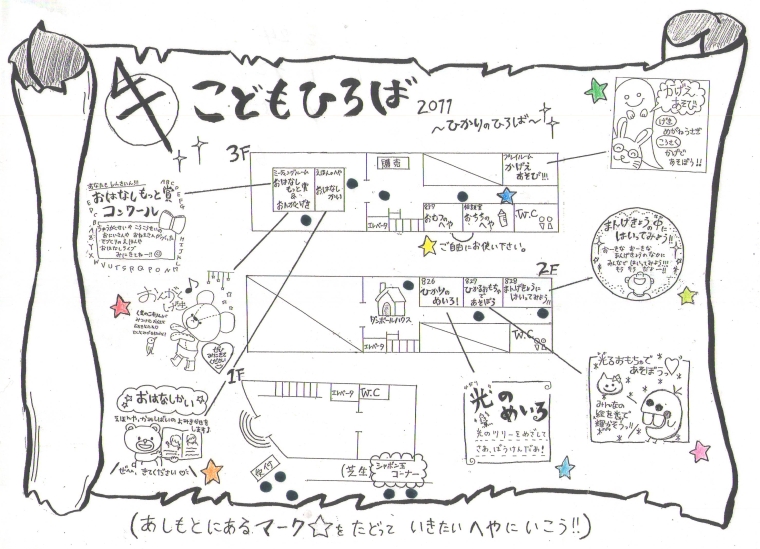 こどもひろば 2011
～ひかりのひろば～
3F
ミーティングルーム
おはなし
もっと賞
&
おんがくげき
えほんのへや
おはなし
かい
プレイルーム
かげえ
あそび!!!
エレベータ
おむつ
へや
おちちの
へや
W.C
ご自由にお使い下さい。
かげえ
あそび
めがねうさぎ
かげで
あそぼう!!
おはなしもっと賞
コンクール
2F
ダンボールハウス
エレベータ
826
ひかりの
めいろ!
827
ひかるおもちゃで
あそぼう
828
まんげきょうに
はいってみよう!!!
W.C
まんげきょうの中に
はいってみよう!!
おんがく
げき
ぜひ
みにきて
ください
1F
エレベータ
W.C
受付
(芝生)
シャボン玉
コーナー
おはなしかい
えほんや、かみしばいのよみきかせを
しますよ
ぜひ、きてください
光の
めいろ
光のツリーをめざして
さあ、ぼうけんだぁ!
光るおもちゃで
あそぼうっ
みんなの
絵を書て
輝かそうっ!!
(あしもとにあるマーク☆をたどって いきたいへやにいこう!!)